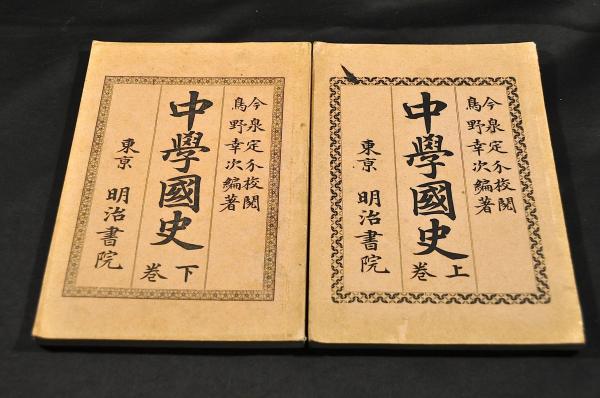 今泉定介校閲
鳥野幸次編著
中學國史
上巻
東京 明治書院
今泉定介校閲
鳥野幸次編著
中學國史
下巻
東京 明治書院